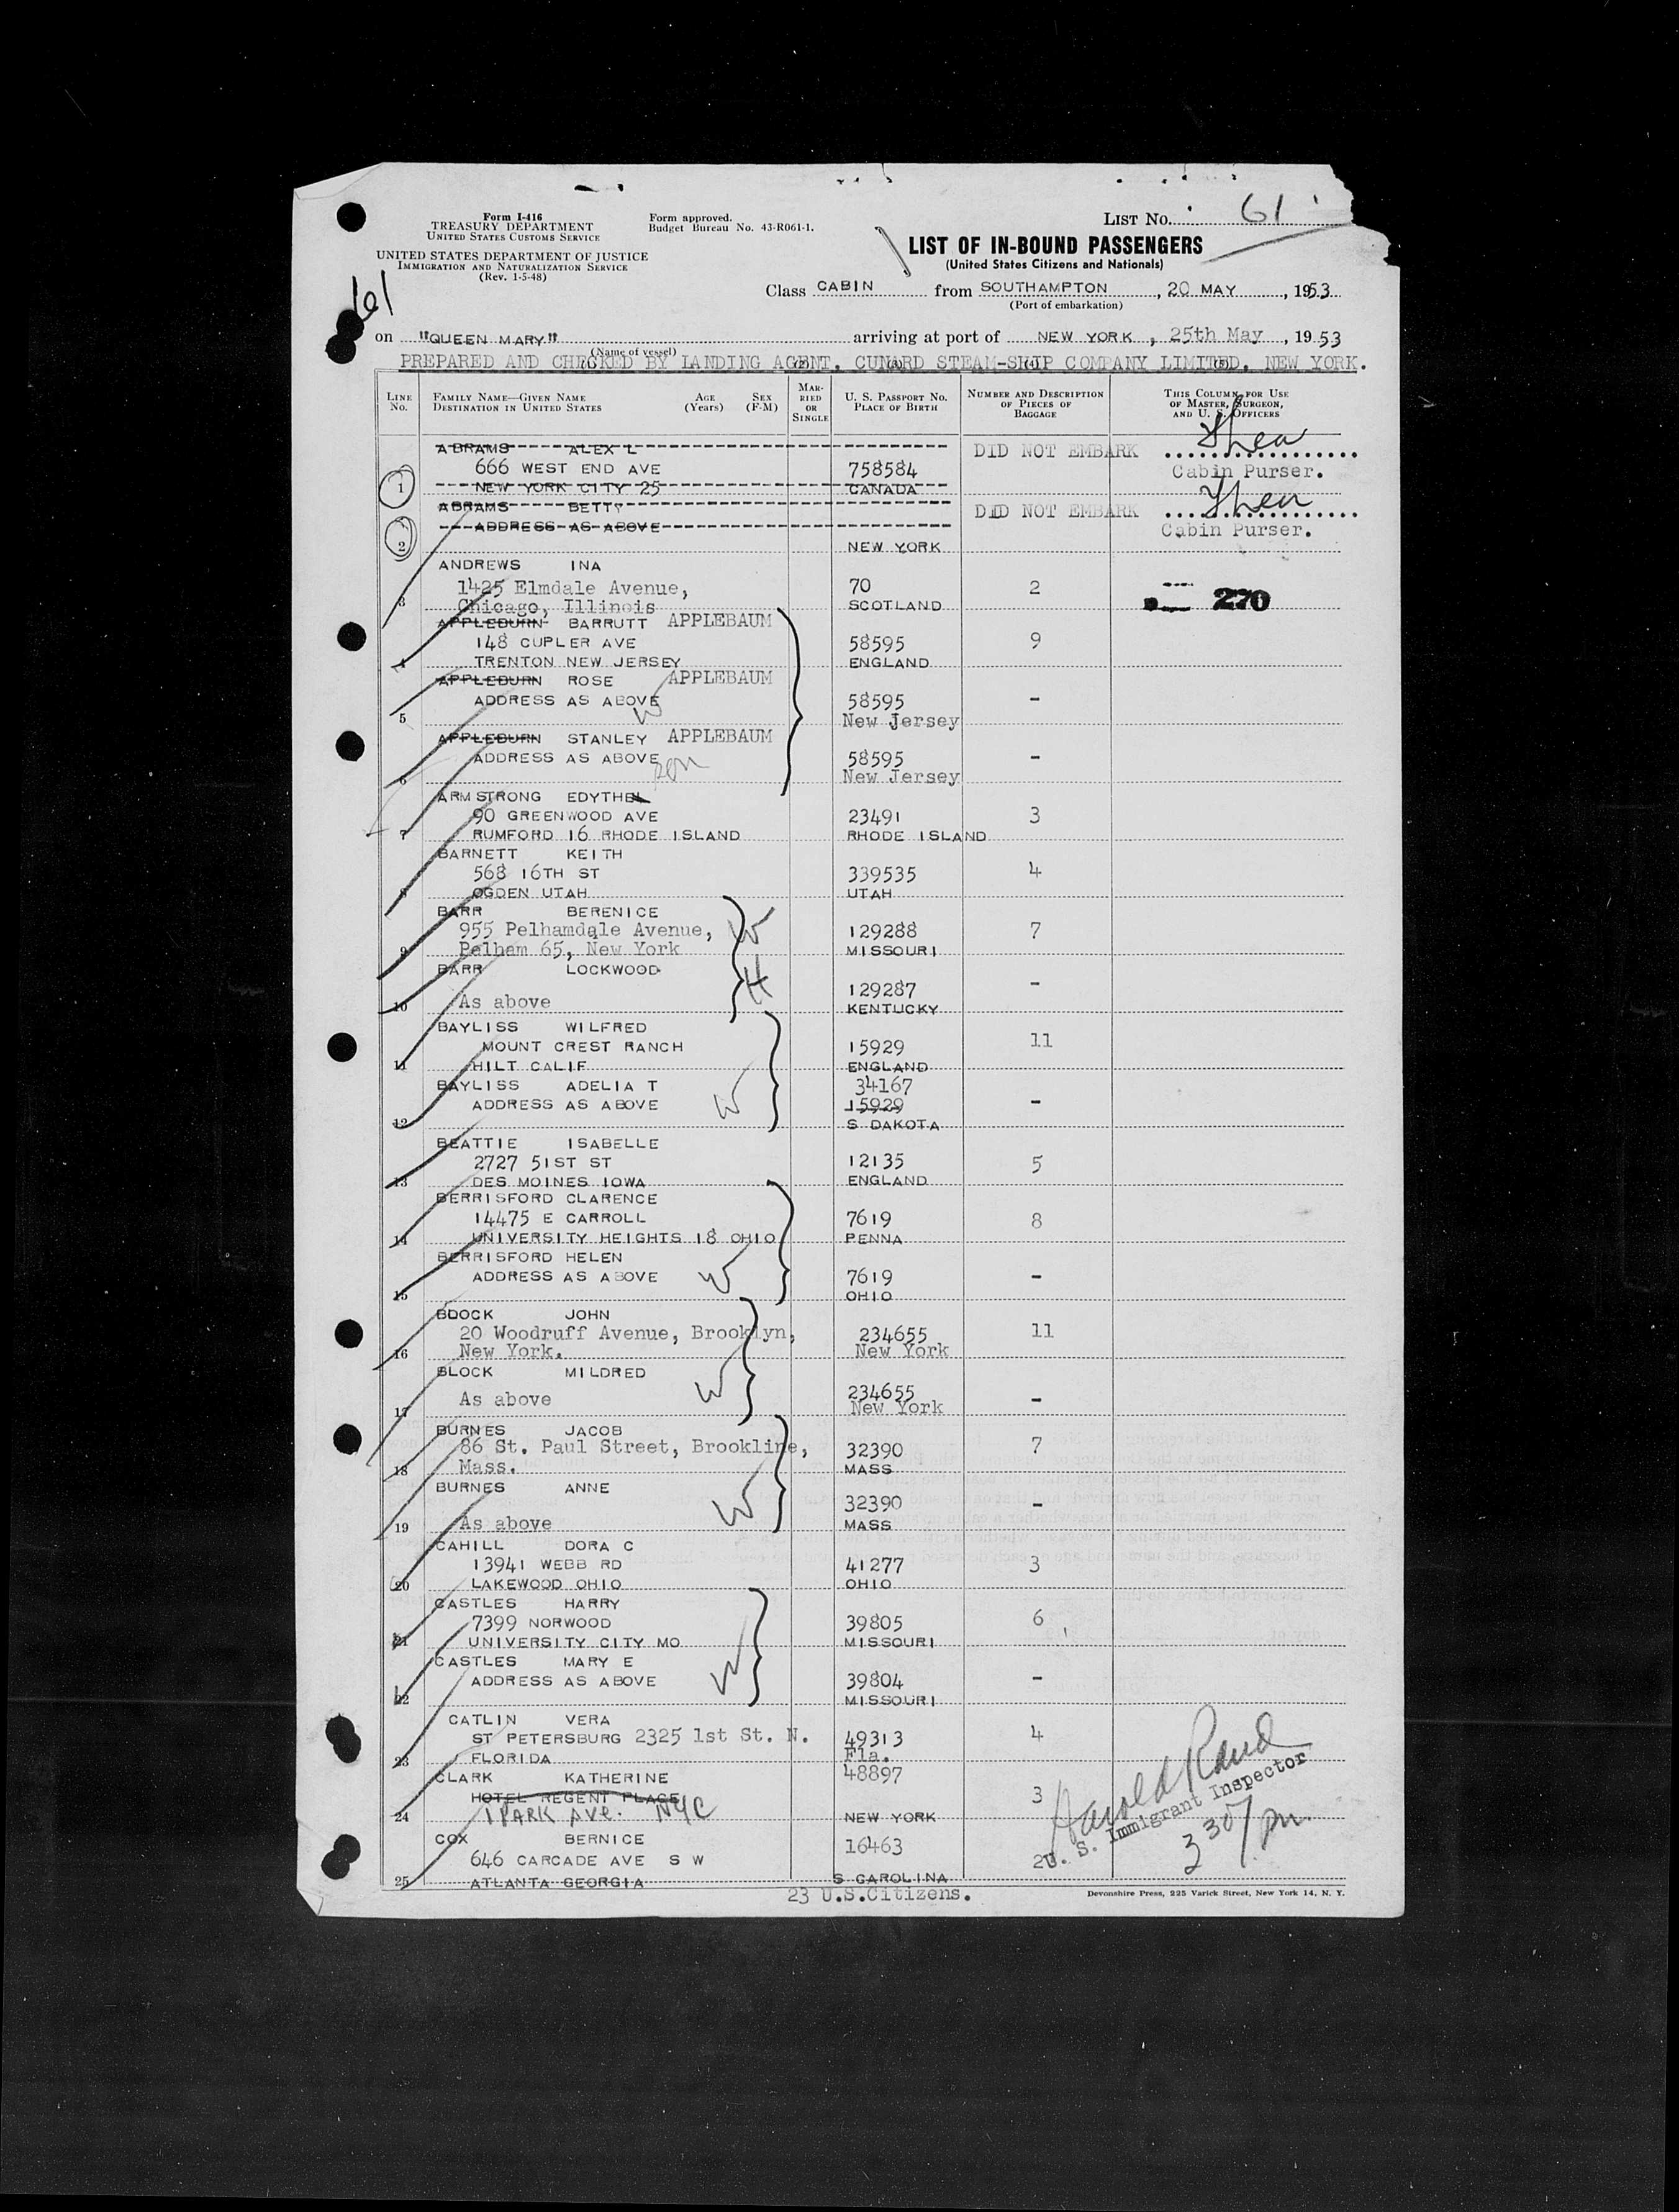 Form I-416
TREASURY DEPARTMENT
UNITED STATES CUSTOMS SERVICE
UNITED STATES DEPARTMENT OF JUSTICE
IMMIGRATION AND NATURALIZATION SERVICE
(Rev. 1-5-48)
Form approved.
Budget Bureau No. 43-R061-1.
LIST NO. 61
LIST OF IN-BOUND PASSENGERS
(United States Citizens and Nationals)
61
Class CABIN from SOUTHAMPTON, 20 MAY, 1953
(Port of embarkation)
on "QUEEN MARY" arriving at port of NEW YORK, 25th May, 1953
(Name of vessel)
PREPARED AND CHECKED BY LANDING AGENT, CUNARD STEAM-SHIP COMPANY LIMITED, NEW YORK.
LINE NO. FAMILY NAME—GIVEN NAME DESTINATION IN UNITED STATES AGE (Years) SEX (F-M) MARRIED OR SINGLE U. S. PASSPORT NO. PLACE OF BIRTH NUMBER AND DESCRIPTION OF PIECES OF BAGGAGE THIS COLUMN FOR USE OF MASTER, SURGEON, AND U. S. OFFICERS
ABRAMS ALEX L DID NOT EMBARK
666 WEST END AVE 758584 Cabin Purser.
1 NEW YORK CITY 25 CANADA
ABRAMS BETTY DID NOT EMBARK
ADDRESS AS ABOVE Cabin Purser.
2 NEW YORK
ANDREWS INA
1425 Elmdale Avenue, 70 2
3 Chicago, Illinois SCOTLAND 270
APPLEBURN BARRUTT APPLEBAUM
148 CUPLER AVE 58595 9
4 TRENTON NEW JERSEY ENGLAND
APPLEBURN ROSE APPLEBAUM
ADDRESS AS ABOVE W 58595 -
5 New Jersey
APPLEBURN STANLEY APPLEBAUM
ADDRESS AS ABOVE son 58595 -
6 New Jersey
ARMSTRONG EDYTHE
90 GREENWOOD AVE 23491 3
7 RUMFORD 16 RHODE ISLAND RHODE ISLAND
BARNETT KEITH
568 16TH ST 339535 4
8 OGDEN UTAH UTAH
BARR BERENICE
955 Pelhamdale Avenue, W 129288 7
9 Pelham 65, New York MISSOURI
BARR LOCKWOOD H
129287 -
10 As above KENTUCKY
BAYLISS WILFRED
MOUNT CREST RANCH 15929 11
11 HILT CALIF ENGLAND
BAYLISS ADELIA T 34167
ADDRESS AS ABOVE W 15929 -
12 S DAKOTA
BEATTIE ISABELLE
2727 51ST ST 12135 5
13 DES MOINES IOWA ENGLAND
BERRISFORD CLARENCE
14475 E CARROLL 7619 8
14 UNIVERSITY HEIGHTS 18 OHIO PENNA
BERRISFORD HELEN
ADDRESS AS ABOVE W 7619 -
15 OHIO
BLOCK JOHN
20 Woodruff Avenue, Brooklyn, 234655 11
16 New York. New York
BLOCK MILDRED
As above W 234655 -
17 New York
BURNES JACOB
86 St. Paul Street, Brookline, 32390 7
18 Mass. MASS
BURNES ANNE
W 32390 -
19 As above MASS
CAHILL DORA C
13941 WEBB RD 41277 3
20 LAKEWOOD OHIO OHIO
CASTLES HARRY
7399 NORWOOD 39805 6
21 UNIVERSITY CITY MO MISSOURI
CASTLES MARY E
ADDRESS AS ABOVE W 39804 -
22 MISSOURI
CATLIN VERA
ST PETERSBURG 2325 1st St. N. 49313 4
23 FLORIDA Fla.
CLARK KATHERINE 48897
HOTEL REGENT PLACE 3
24 1 PARK AVE. NYC NEW YORK
COX BERNICE 16463
646 CARCADE AVE S W 2
25 ATLANTA GEORGIA S CAROLINA
Harold Rand
U. S. Immigrant Inspector
3 30 pm
23 U.S.Citizens.
Devonshire Press, 225 Varick Street, New York 14, N. Y.